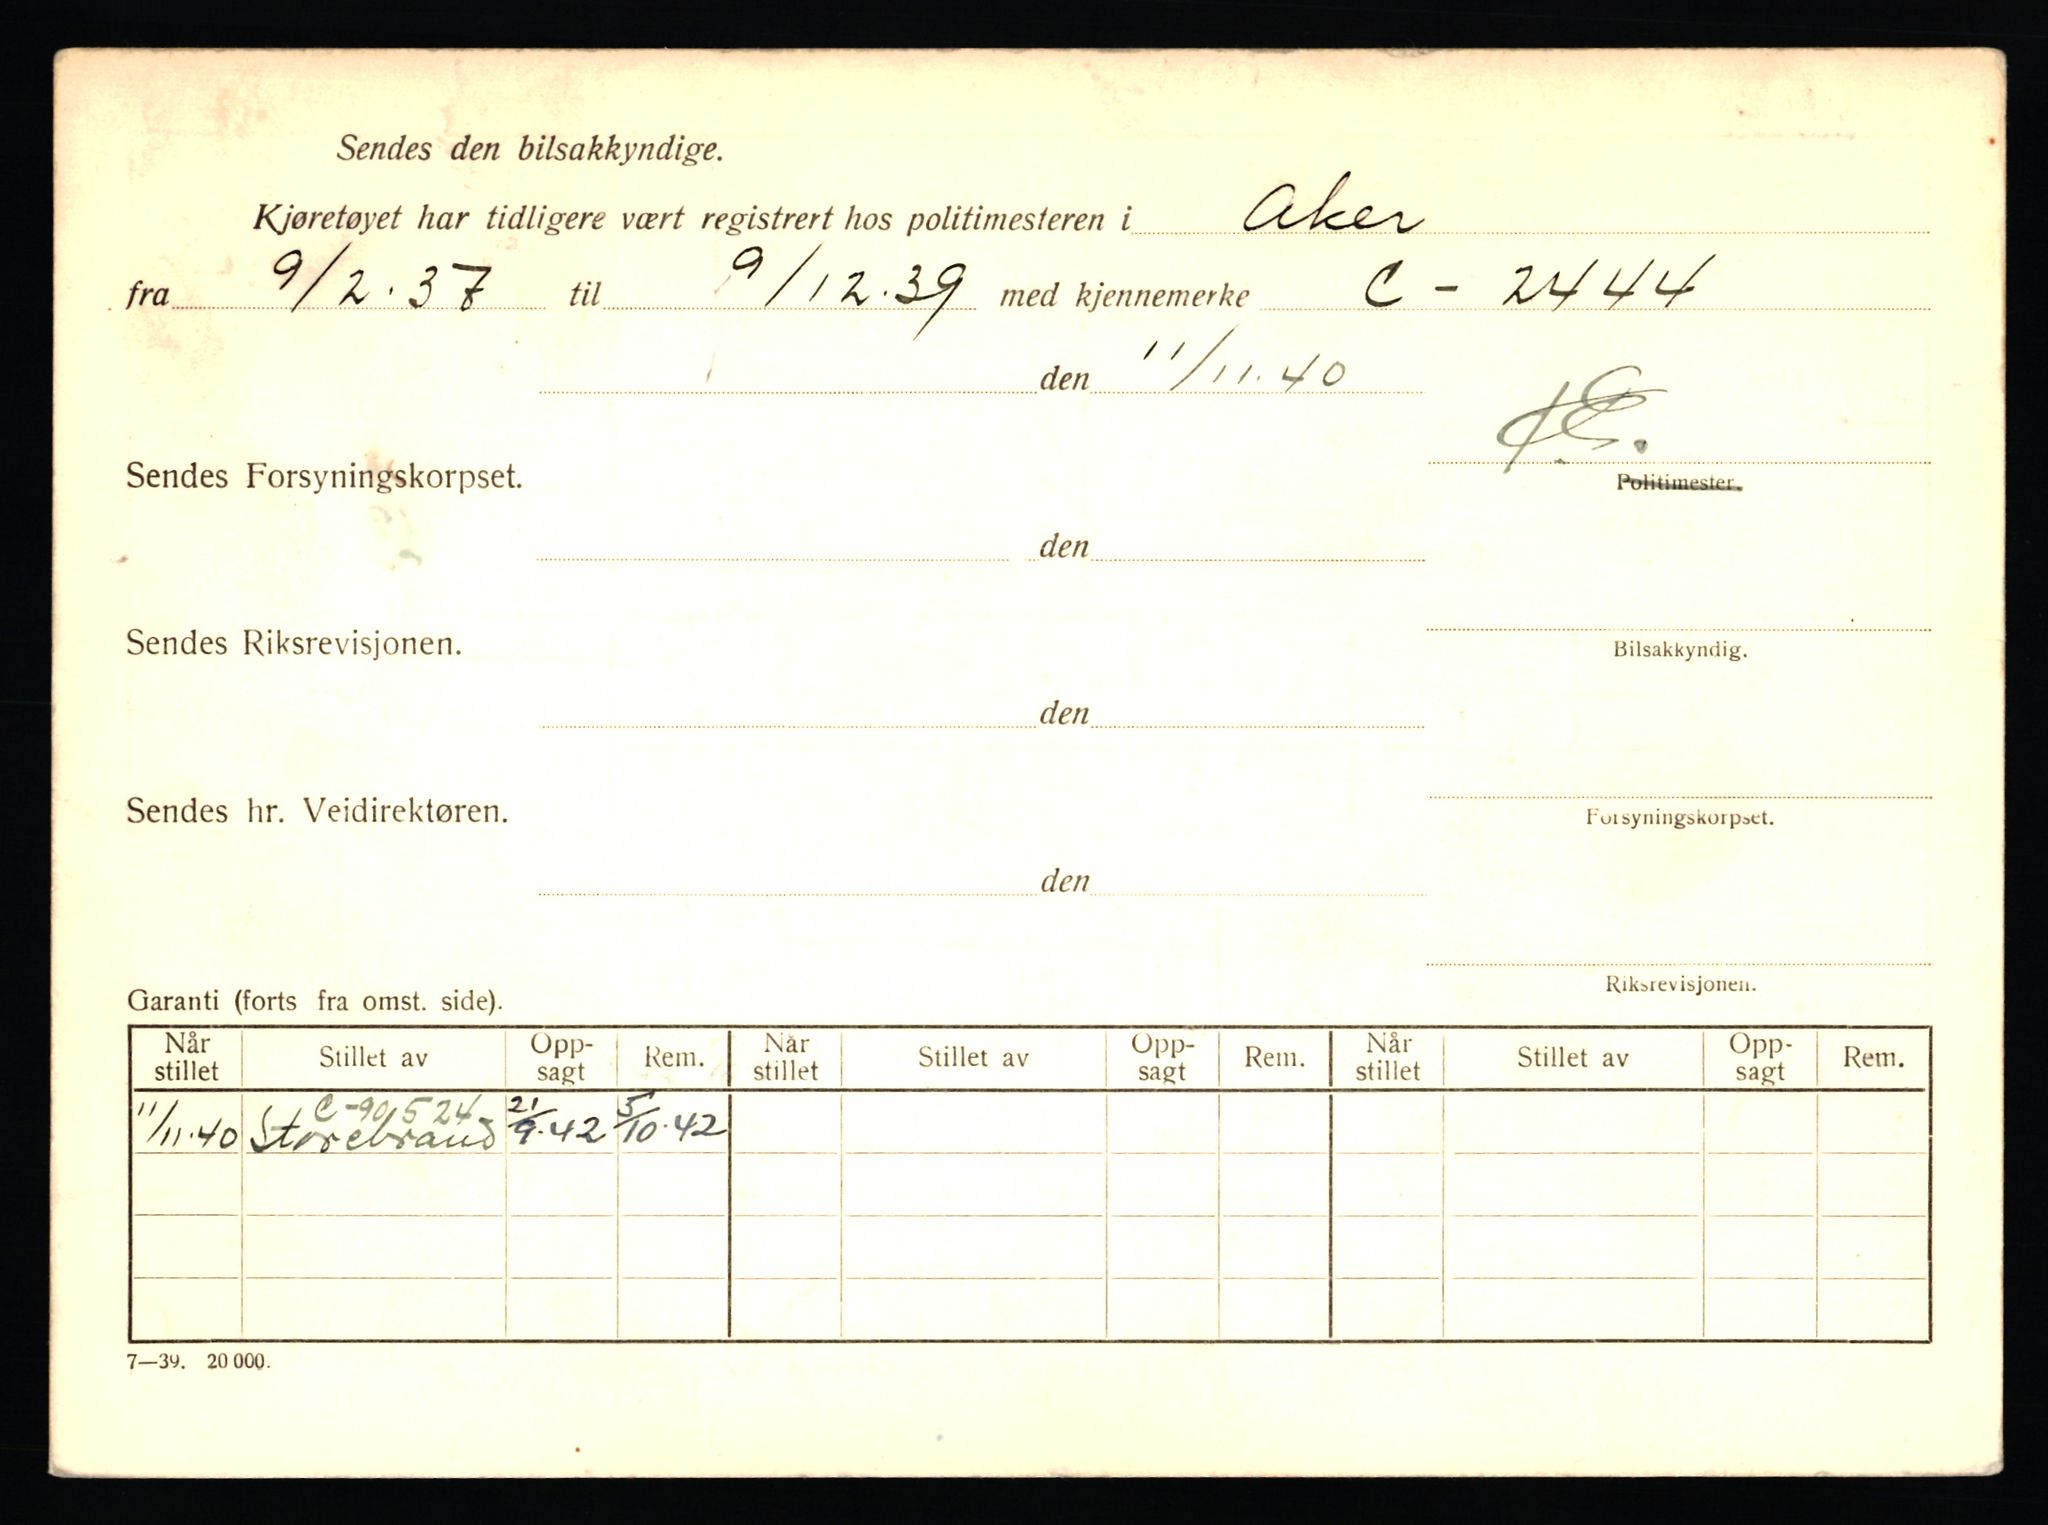 Sendes den bilsakkyndige.
Kjøretøyet har tidligere vært registrert hos politimesteren i Aker
fra 9/2.37 til 9/12.39 med kjennemerke C - 2444
den 11/11.40
Sendes Forsyningskorpset.
Politimester.
den
Sendes Riksrevisjonen.
Bilsakkyndig.
den
Sendes hr. Veidirektøren.
Forsyningskorpset.
den
Riksrevisjonen.
Garanti (forts fra omst. side).
Når stillet Stillet av Opp-sagt Rem. Når stillet Stillet av Opp-sagt Rem. Når stillet Stillet av Opp-sagt Rem.
C-901524
11/11.40 Storebrand 21/9.42 5/10.42
7—39. 20 000.